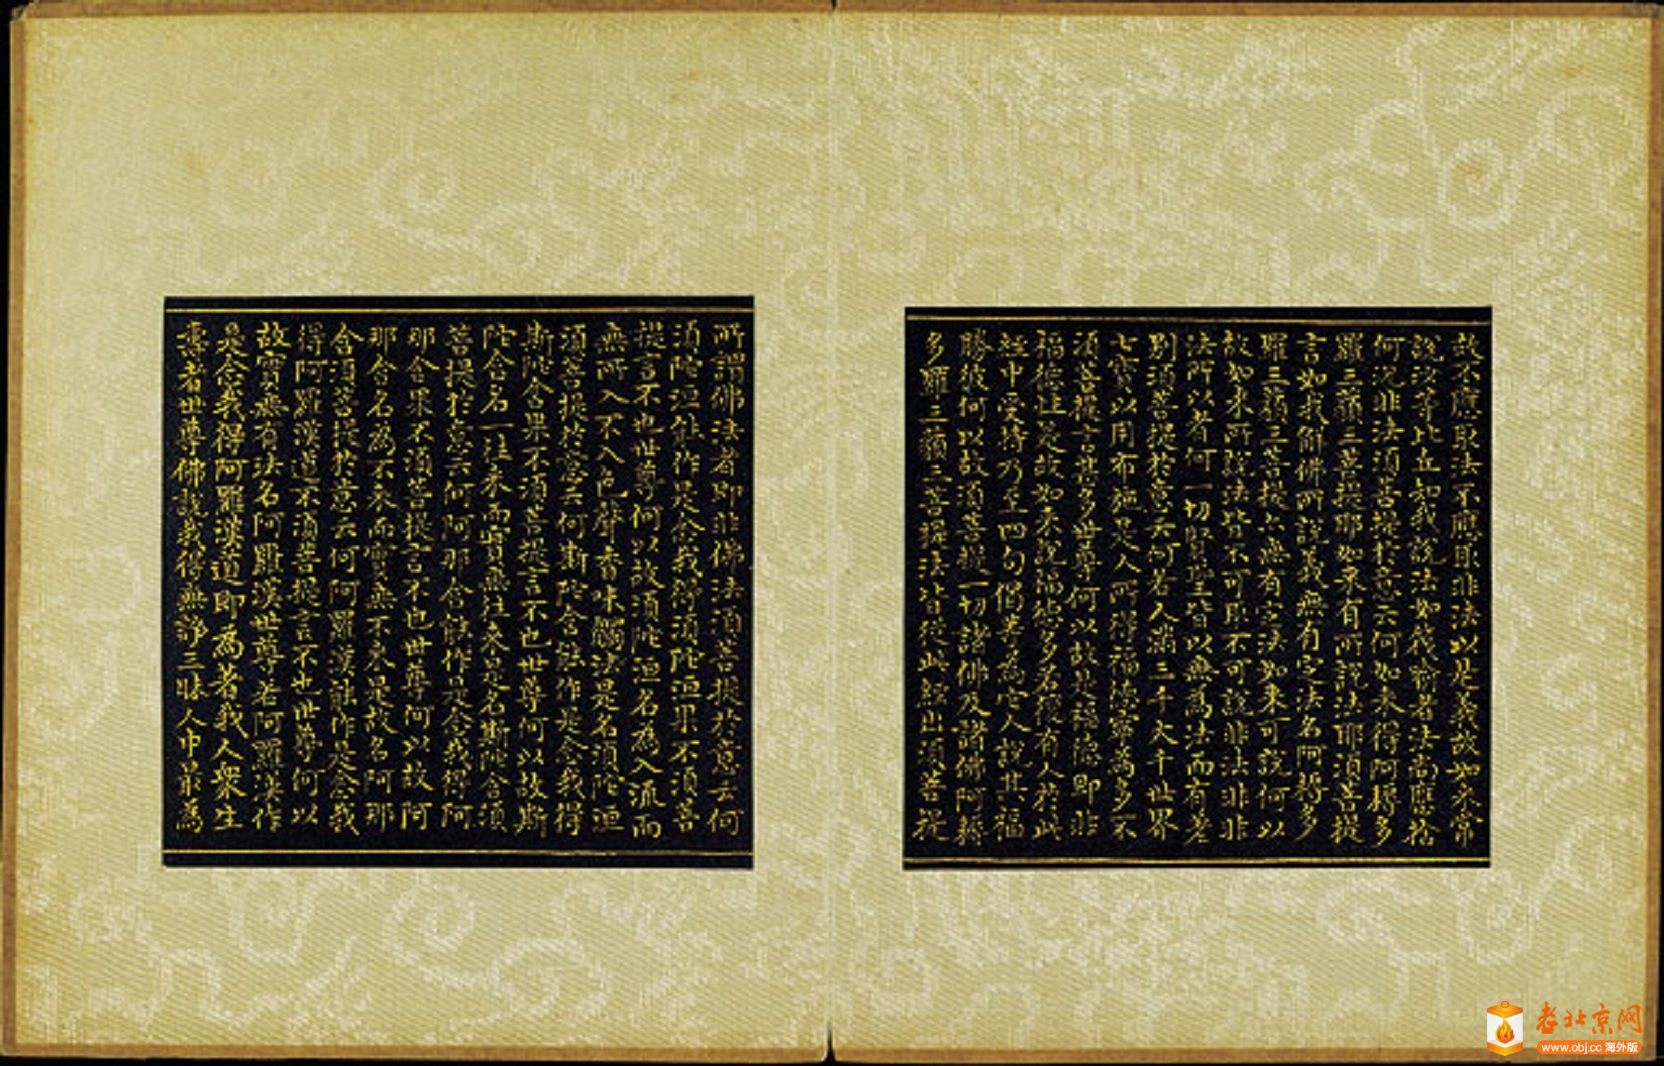 故不應取法不應取非法以是義故如來常
說汝等比丘知我說法如筏喻者法尚應捨
何況非法須菩提於意云何如來得阿耨多
羅三藐三菩提耶如來有所說法耶須菩提
言如我解佛所說義無有定法名阿耨多
羅三藐三菩提亦無有定法如來可說何以
故如來所說法皆不可取不可說非法非非
法所以者何一切賢聖皆以無為法而有差
別須菩提於意云何若人滿三千大千世界
七寶以用布施是人所得福德寧為多不
須菩提言甚多世尊何以故是福德即非
福德性是故如來說福德多若復有人於此
經中受持乃至四句偈等為它人說其福
勝彼何以故須菩提一切諸佛及諸佛阿耨
多羅三藐三菩提法皆從此經出須菩提
所謂佛法者即非佛法須菩提於意云何
須陀洹能作是念我得須陀洹果不須菩
提言不也世尊何以故須陀洹名為入流而
無所入不入色聲香味觸法是名須陀洹
須菩提於意云何斯陀含能作是念我得
斯陀含果不須菩提言不也世尊何以故斯
陀含名一往來而實無往來是名斯陀含須
菩提於意云何阿那含能作是念我得阿
那含果不須菩提言不也世尊何以故阿
那含名為不來而實無不來是故名阿那
含須菩提於意云何阿羅漢能作是念我
得阿羅漢道不須菩提言不也世尊何以
故實無有法名阿羅漢世尊若阿羅漢作
是念我得阿羅漢道即為著我人眾生
壽者世尊佛說我得無諍三昧人中最為
老北京网
www.obj.cc 海外版